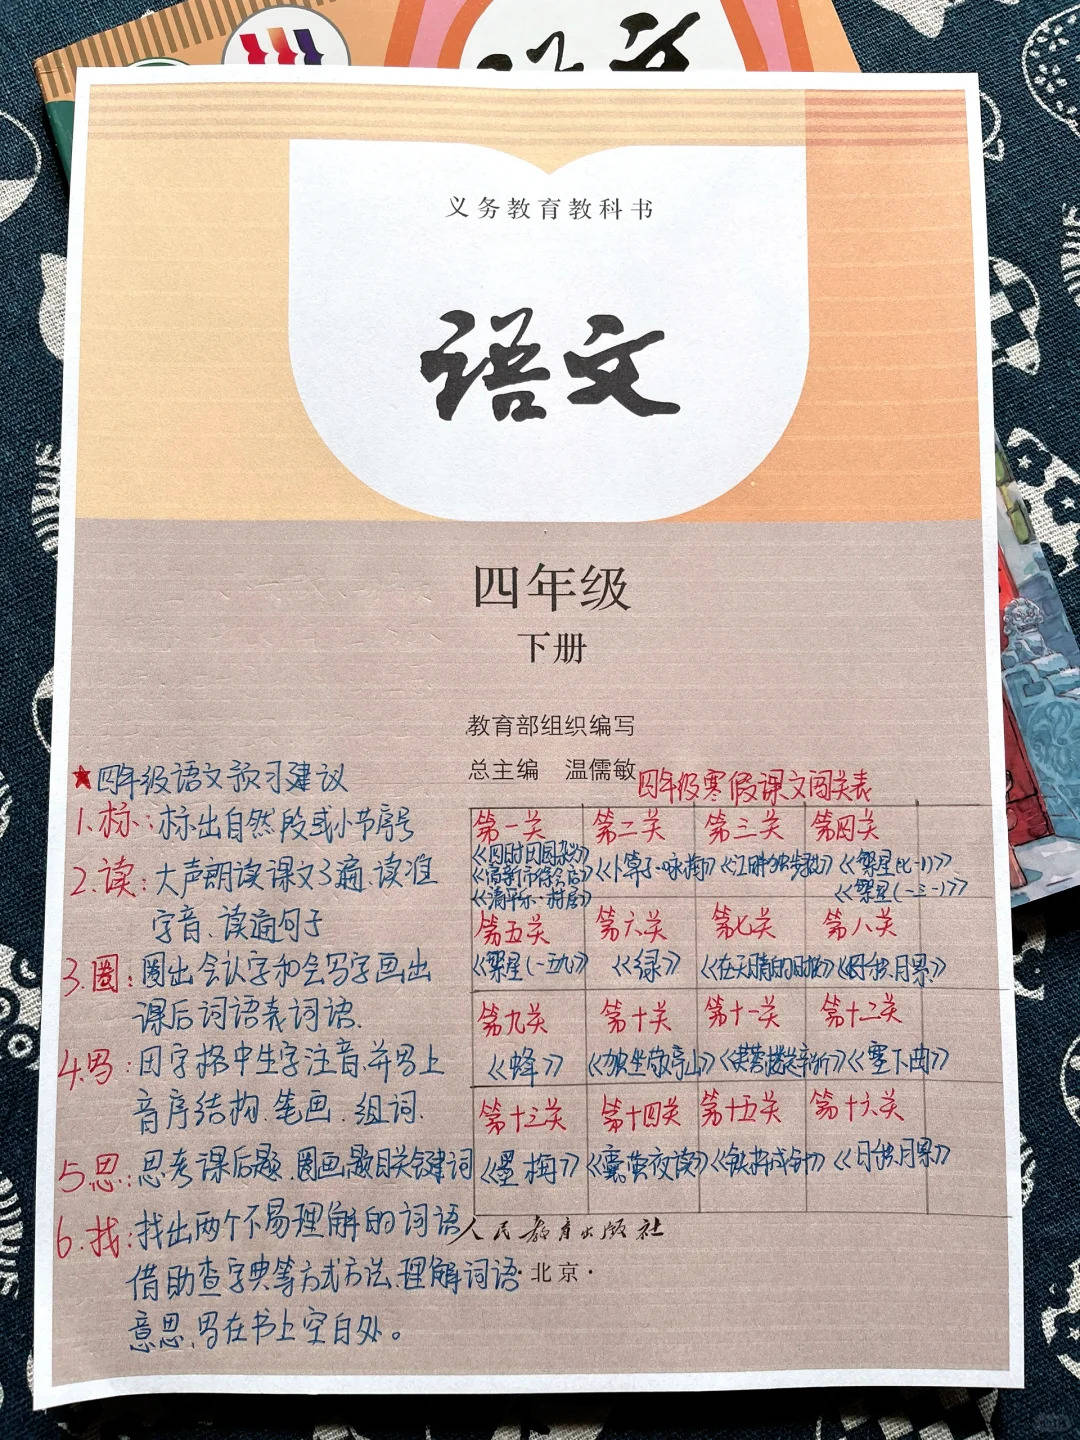 义务教育教科书
语文
四年级
下册
教育部组织编写
总主编 温儒敏
★四年级语文预习建议
1.标：标出自然段或小节序号
2.读：大声朗读课文3遍、读准
字音、读通句子
3.圈：圈出会认字和会写字画出
课后词语表词语.
4.写：田字格中生字注音、并写上
音序结构、笔画、组词.
5思：思考课后题、圈画题目关键词
6.找：找出两个不易理解的词语
借助查字典等方式方法、理解词语
意思、写在书上空白处。
四年级寒假课文闯关表
第一关 第二关 第三关 第四关
《四时田园杂兴》
《宿新市徐公店》《卜算子·咏梅》《江畔独步寻花》《繁星(七一)》
《清平乐·村居》 《繁星(一三一)》
第五关 第六关 第七关 第八关
《繁星(一五九)》 《绿》 《在天晴了的时候》《四时田园
第九关 第十关 第十一关 第十二关
《蜂》 《独坐敬亭山》《芙蓉楼送辛渐》《塞下曲》
第十三关 第十四关 第十五关 第十六关
《墨梅》《囊萤夜读》《铁杵成针》
人民教育出版社
·北京·